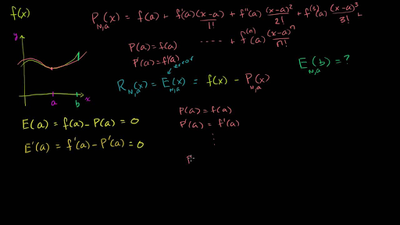 f(x)
P_{N,a}(x) = f(a) + f'(a)(x-a)/1! + f''(a)(x-a)²/2! + f^{(3)}(a)(x-a)³/3! +
..... + f^{(n)}(a)(x-a)^n/n!
P(a) = f(a)
P'(a) = f'(a)
error
R_{N,a}(x) = E_{n,a}(x) = f(x) - P_{n,a}(x)
E_{N,a}(b) = ?
a b x
E(a) = f(a) - P(a) = 0
E'(a) = f'(a) - P'(a) = 0
P(a) = f(a)
P'(a) = f'(a)
⋮